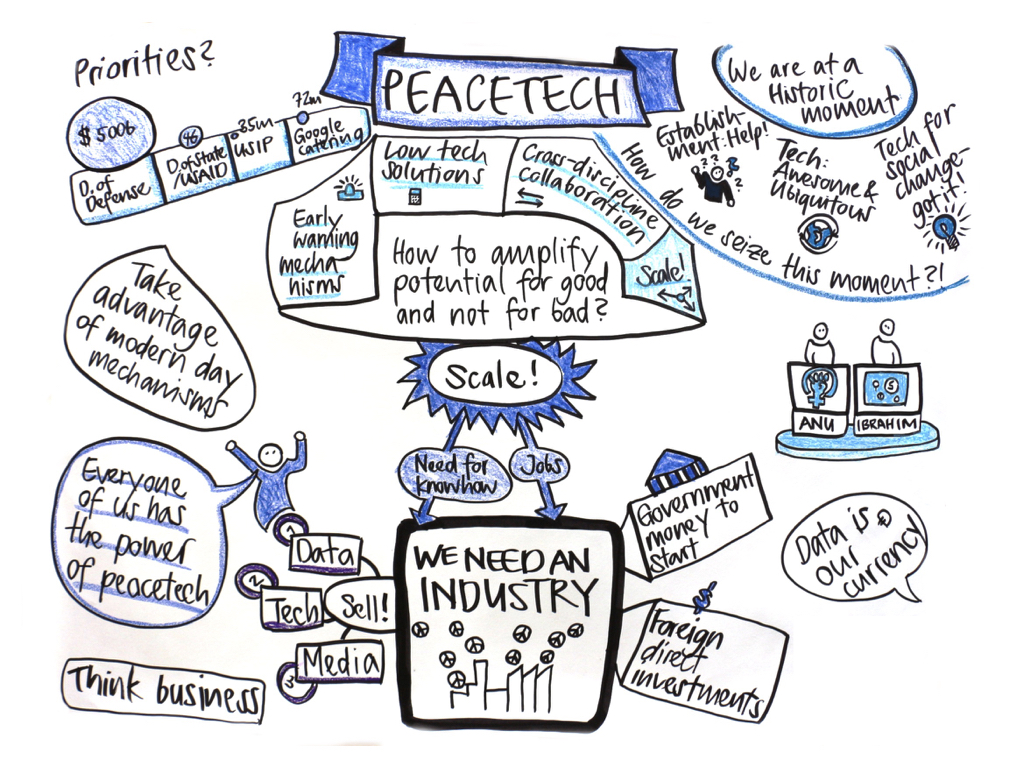 Priorities?
$500b
46
35m
72m
D. of
Defense
D.of State
/USAID
USIP
Google
catering
PEACETECH
We are at a
Historic
moment
Establish-
ment: Help!
Tech:
Awesome &
Ubiquitous
Tech for
social
change-
got it!
How do we seize this moment?!
Early
warning
mecha
nisms
Low tech
solutions
Cross-discipline
collaboration
Scale!
How to amplify
potential for good
and not for bad?
Take
advantage
of modern day
mechanisms
Scale!
Need for
knowhow
Jobs
ANU
IBRAHIM
Everyone
of us has
the power
of peacetech
1
Data
2
Tech
3
Media
Sell!
WE NEED AN
INDUSTRY
Government
money to
start
$
Foreign
direct
investments
Data is
our
currency
Think business